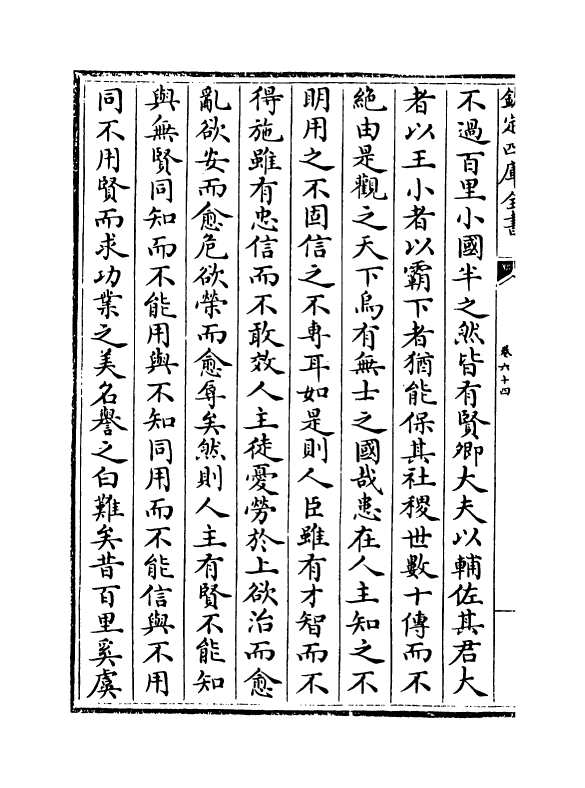 欽定四庫全書
卷六十四
不過百里小國半之然皆有賢卿大夫以輔佐其君大
者以王小者以霸下者猶能保其社稷世數十傳而不
絶由是觀之天下烏有無士之國哉患在人主知之不
明用之不固信之不專耳如是則人臣雖有才智而不
得施雖有忠信而不敢效人主徒憂勞於上欲治而愈
亂欲安而愈危欲榮而愈辱矣然則人主有賢不能知
與無賢同知而不能用與不知同用而不能信與不用
同不用賢而求功業之美名譽之白難矣昔百里奚虞